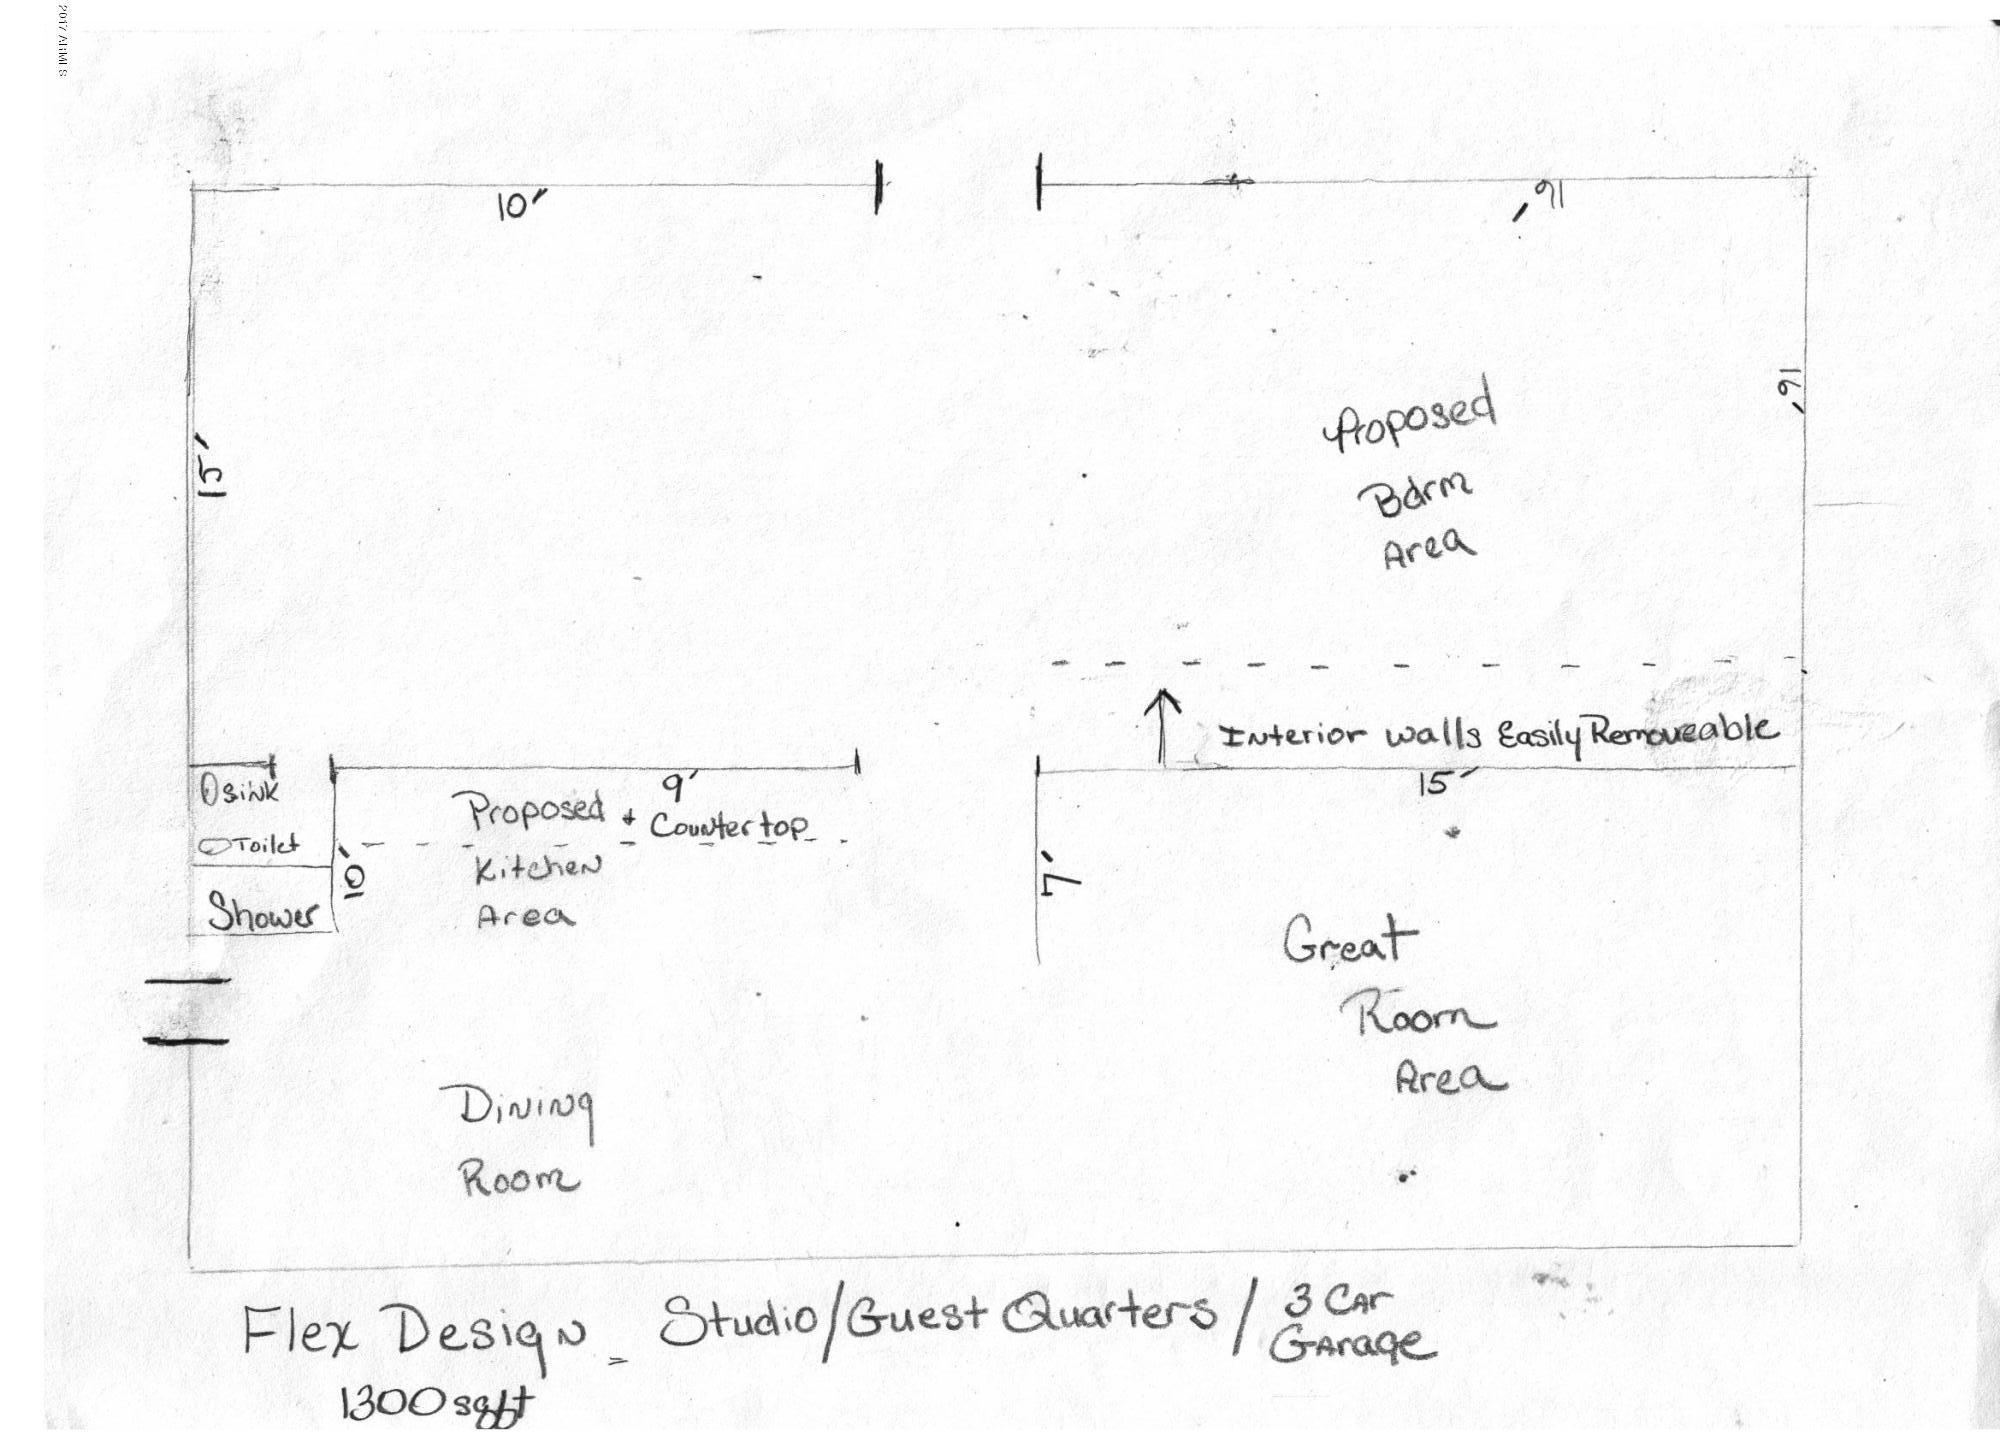 2017 ARMLS
10'
16'
16'
15'
Proposed
Bdrm
Area
Interior walls Easily Removeable
sink
Toilet
Shower
10'
9'
Proposed + Countertop
Kitchen
Area
15'
7'
Great
Room
Area
Dining
Room
Flex Design = Studio/Guest Quarters / 3 Car
Garage
1300 sqft